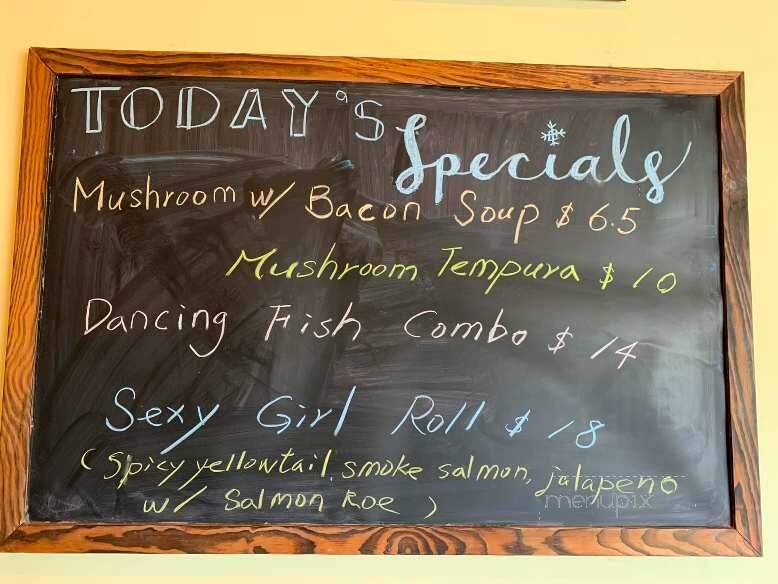 TODAY's
Specials
Mushroom w/ Bacon Soup $ 6.5
Mushroom Tempura $ 10
Dancing Fish Combo $ 14
Sexy Girl Roll $ 18
(Spicy yellowtail, smoke salmon, jalapeno
w/ Salmon Roe )
menupix